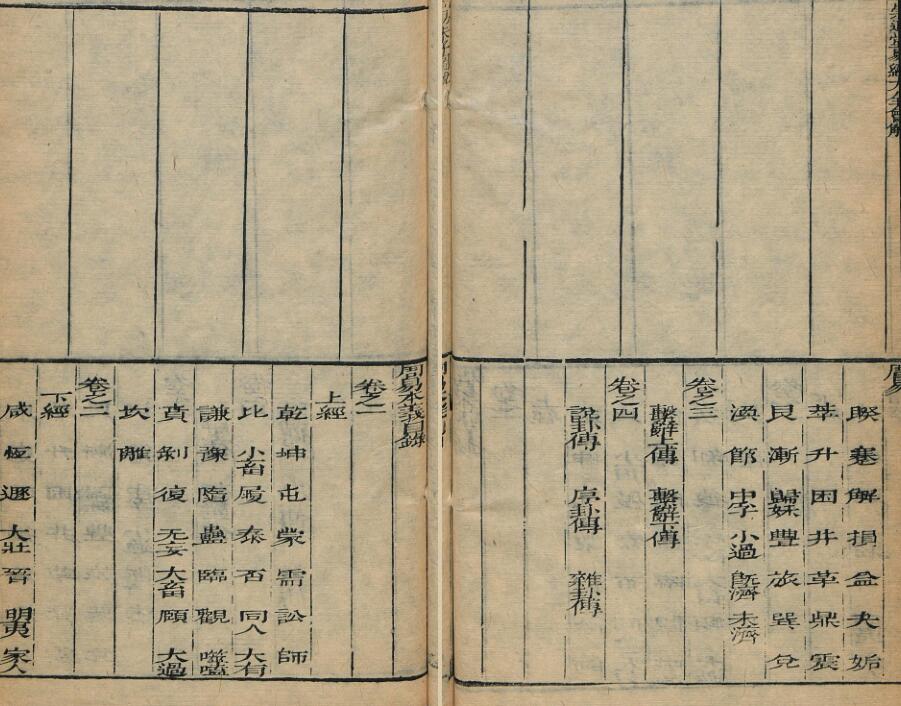 周易本義目錄
卷之一
上經
乾 坤 屯 蒙 需 訟 師
比 小畜 履 泰 否 同人 大有
謙 豫 隨 蠱 臨 觀 噬嗑
賁 剝 復 无妄 大畜 頤 大過
坎 離
卷之二
下經
咸 恆 遯 大壯 晉 明夷 家人
易經大全會解
周易
睽 蹇 解 損 益 夬 姤
萃 升 困 井 革 鼎 震
艮 漸 歸妹 豐 旅 巽 兌
渙 節 中孚 小過 既濟 未濟
卷之三
繫辭上傳 繫辭下傳
卷之四
說卦傳 序卦傳 雜卦傳